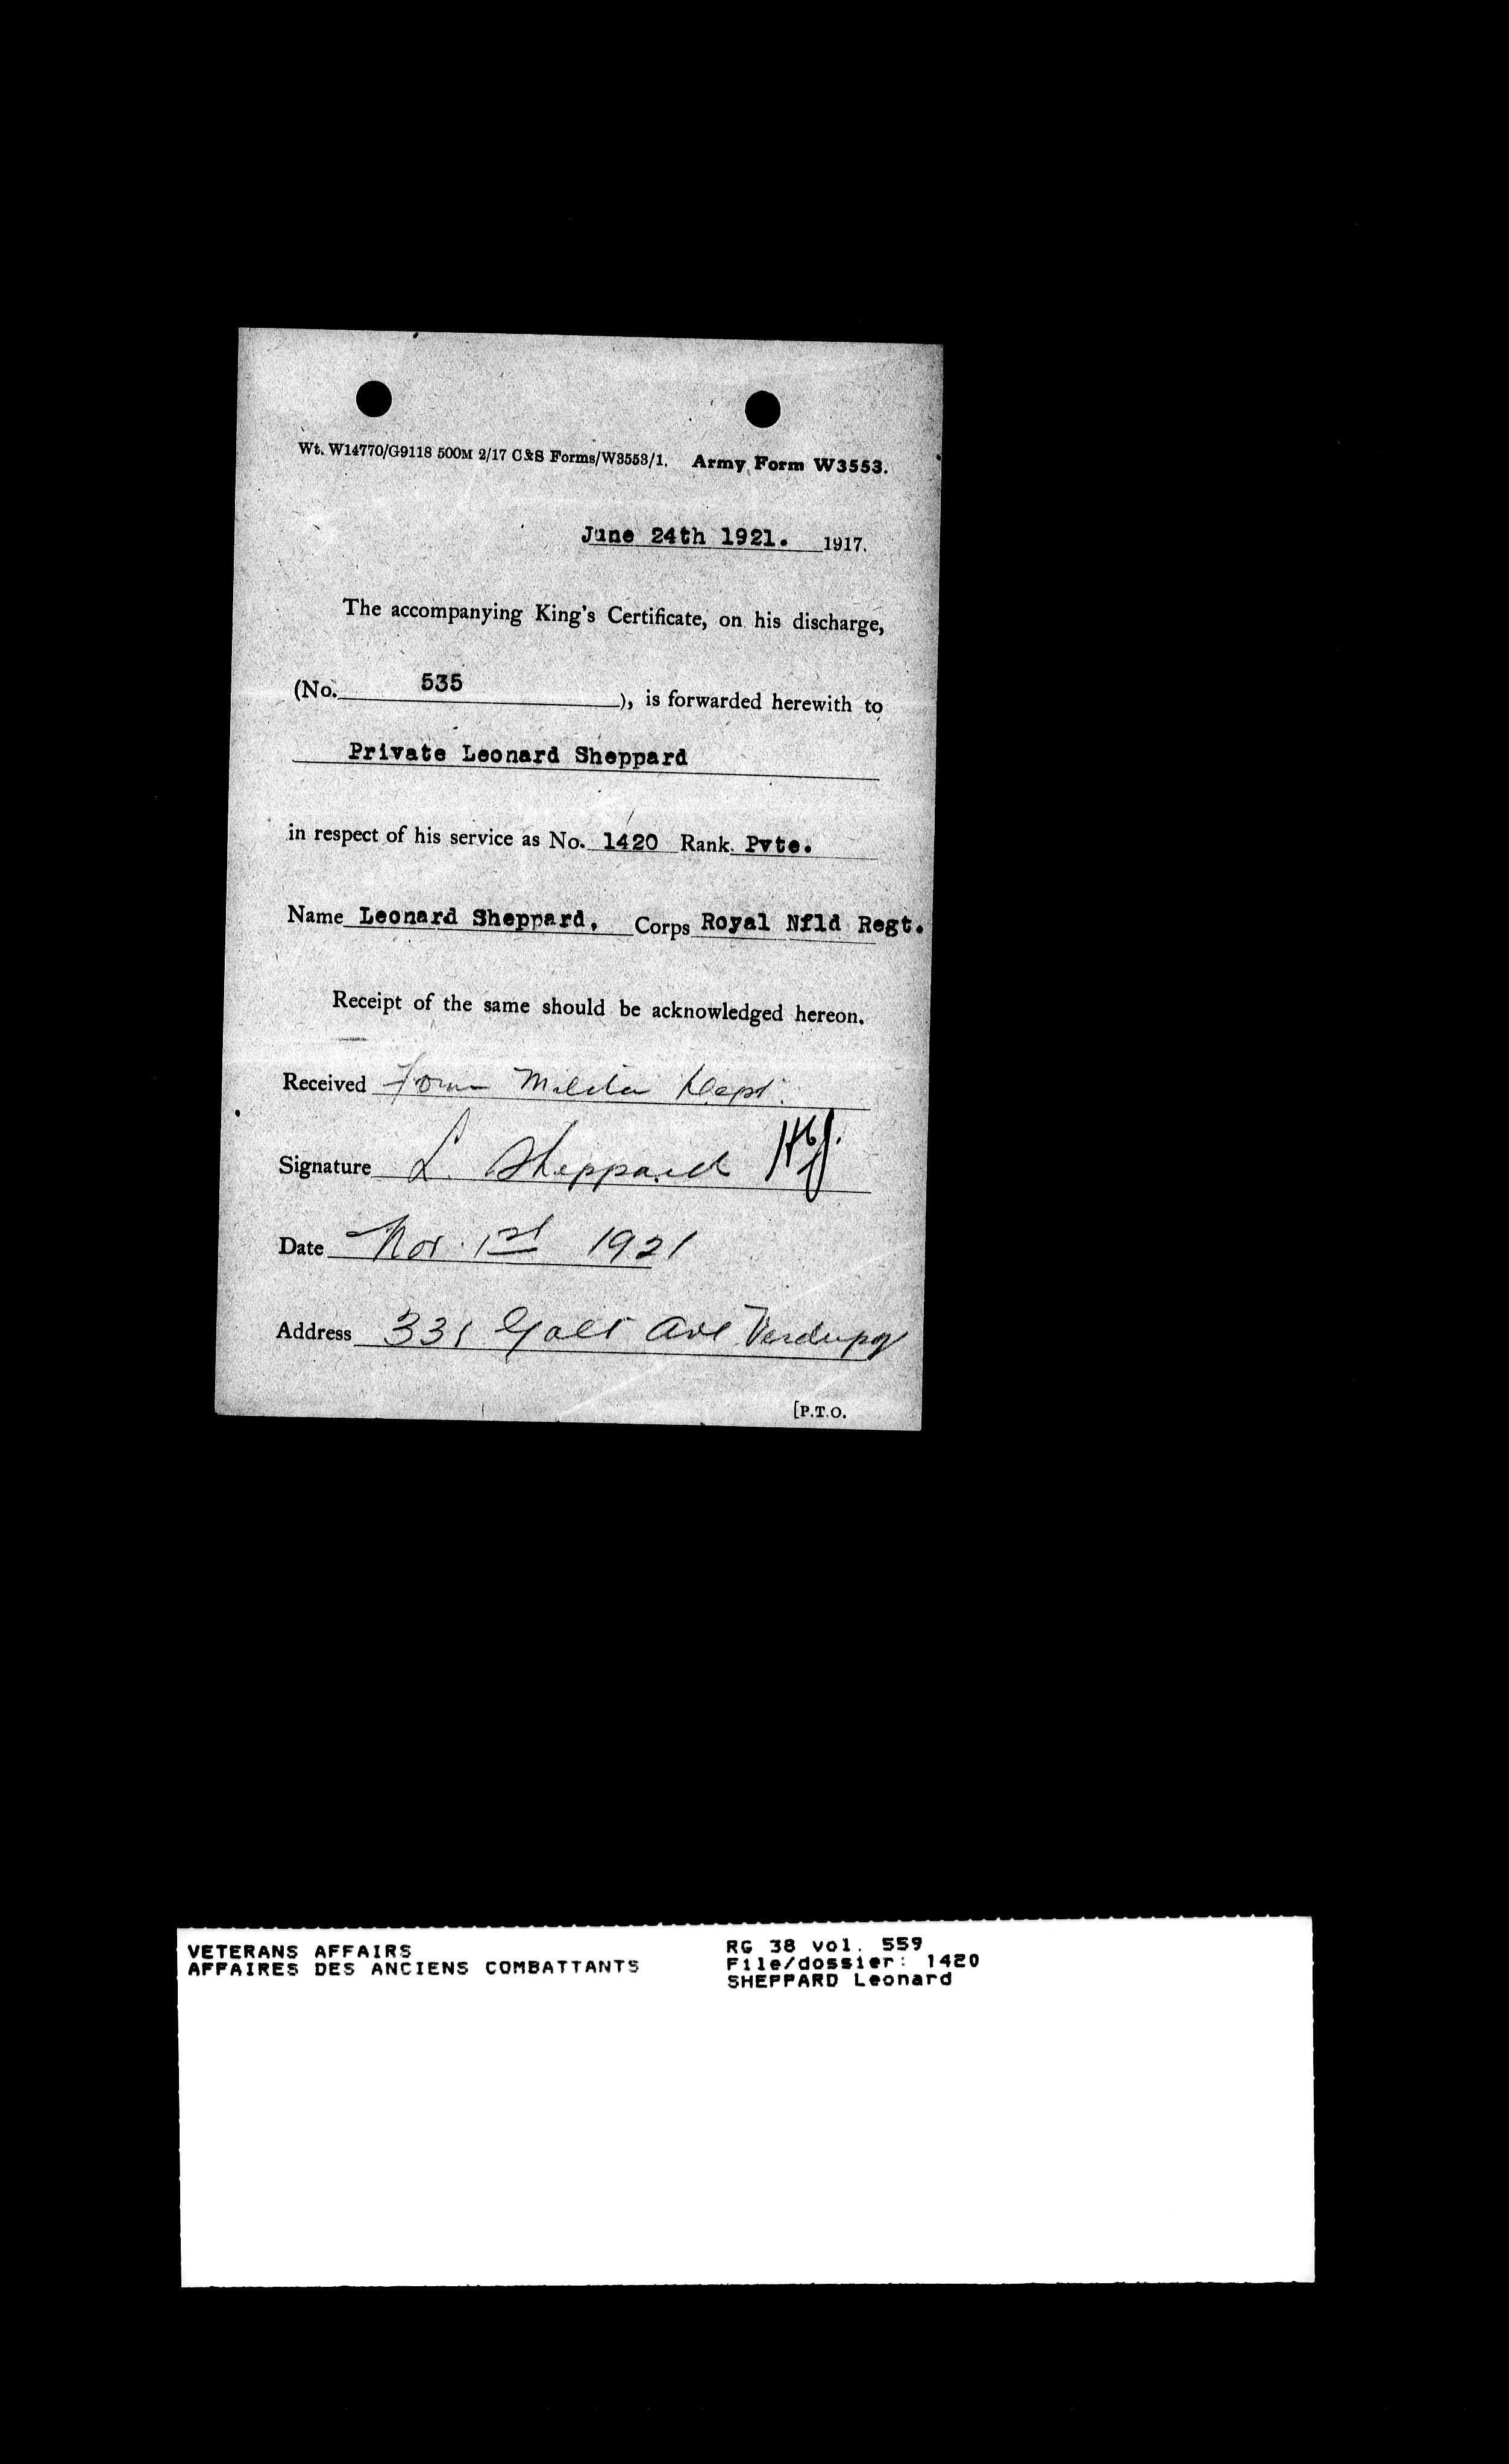 Wt. W14770/G9118 500M 2/17 C&S Forms/W3553/1. Army Form W3553.
June 24th 1921. 1917.
The accompanying King's Certificate, on his discharge,
(No. 535 ), is forwarded herewith to
Private Leonard Sheppard
in respect of his service as No. 1420 Rank Pvte.
Name Leonard Sheppard, Corps Royal Nfld Regt.
Receipt of the same should be acknowledged hereon.
Received From Militia Dept.
Signature L. Sheppard
Date Nov. 1st 1921
Address 331 Galt Ave
[P.T.O.
VETERANS AFFAIRS RG 38 vol. 559
AFFAIRES DES ANCIENS COMBATTANTS File/dossier: 1420
SHEPPARD Leonard